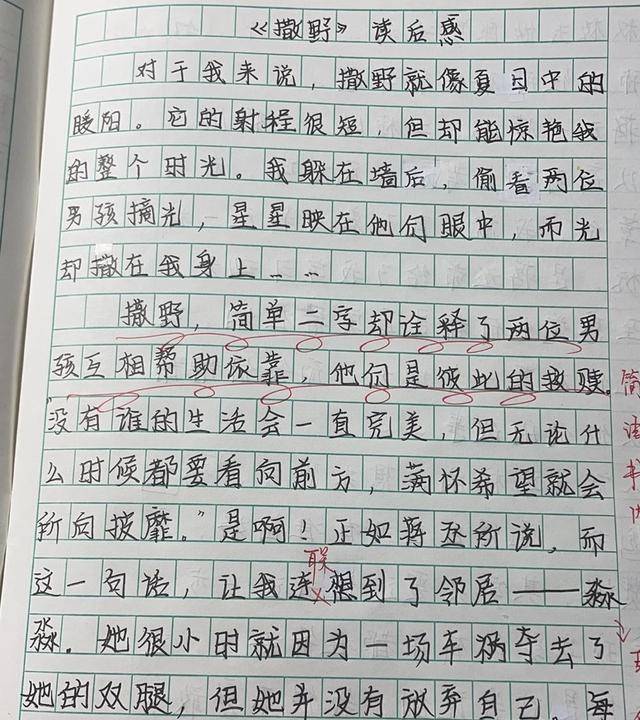 《撒野》读后感
对于我来说，撒野就像夏日中的
暖阳。它的射程很短，但却能惊艳我
的整个时光。我躲在墙后，偷看两位
男孩摘光，星星映在他们眼中，而光
却撒在我身上……
撒野，简单二字却诠释了两位男
孩互相帮助依靠，他们是彼此的救赎。
“没有谁的生活会一直完美，但无论什
么时候都要看向前方，满怀希望就会
所向披靡。”是啊！正如蒋丞所说，而
联
这一句话，让我连想到了邻居——淼
淼．她很小时就因为一场车祸夺去了
她的双腿，但她并没有放弃自己。每
简
洁
书